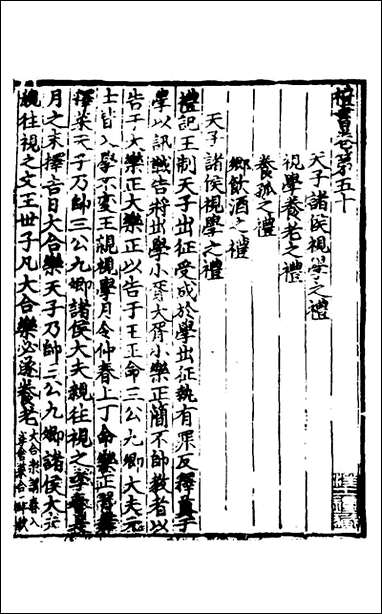 禮書卷第五十
天子諸侯視學之禮
視學養老之禮
養孤之禮
鄉飲酒之禮
天子諸侯視學之禮
禮記王制天子出征受成於學出征執有罪反釋奠于
學以訊馘告將出學小胥大胥小樂正簡不帥教者以
告于大樂正大樂正以告于王王命三公九卿大夫元
士皆入學不變王親視學月令仲春上丁命樂正習舞
釋菜天子乃帥三公九卿諸侯大夫親往視之季春是
月之末擇吉日大合樂天子乃帥三公九卿諸侯大夫
親往視之文王世子凡大合樂必遂養老大合樂謂春入學舍菜合舞秋